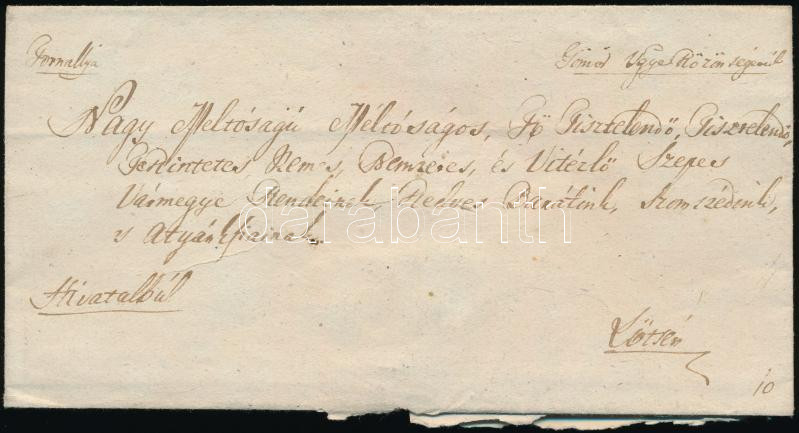 Tornallya
Gömör Vgye Közönségénél
Nagy Meltóságú Méltóságos, Fő Tisztelendő, Tisztelendő,
Tekintetes Nemes, Nemzetes, és Vitézlő Szepes
Vármegye Rendeinek Kedves Barátink, Szomszédink,
s Atyánkfiainak.
darabanth
Hivatalbúl
Lőtsén
10